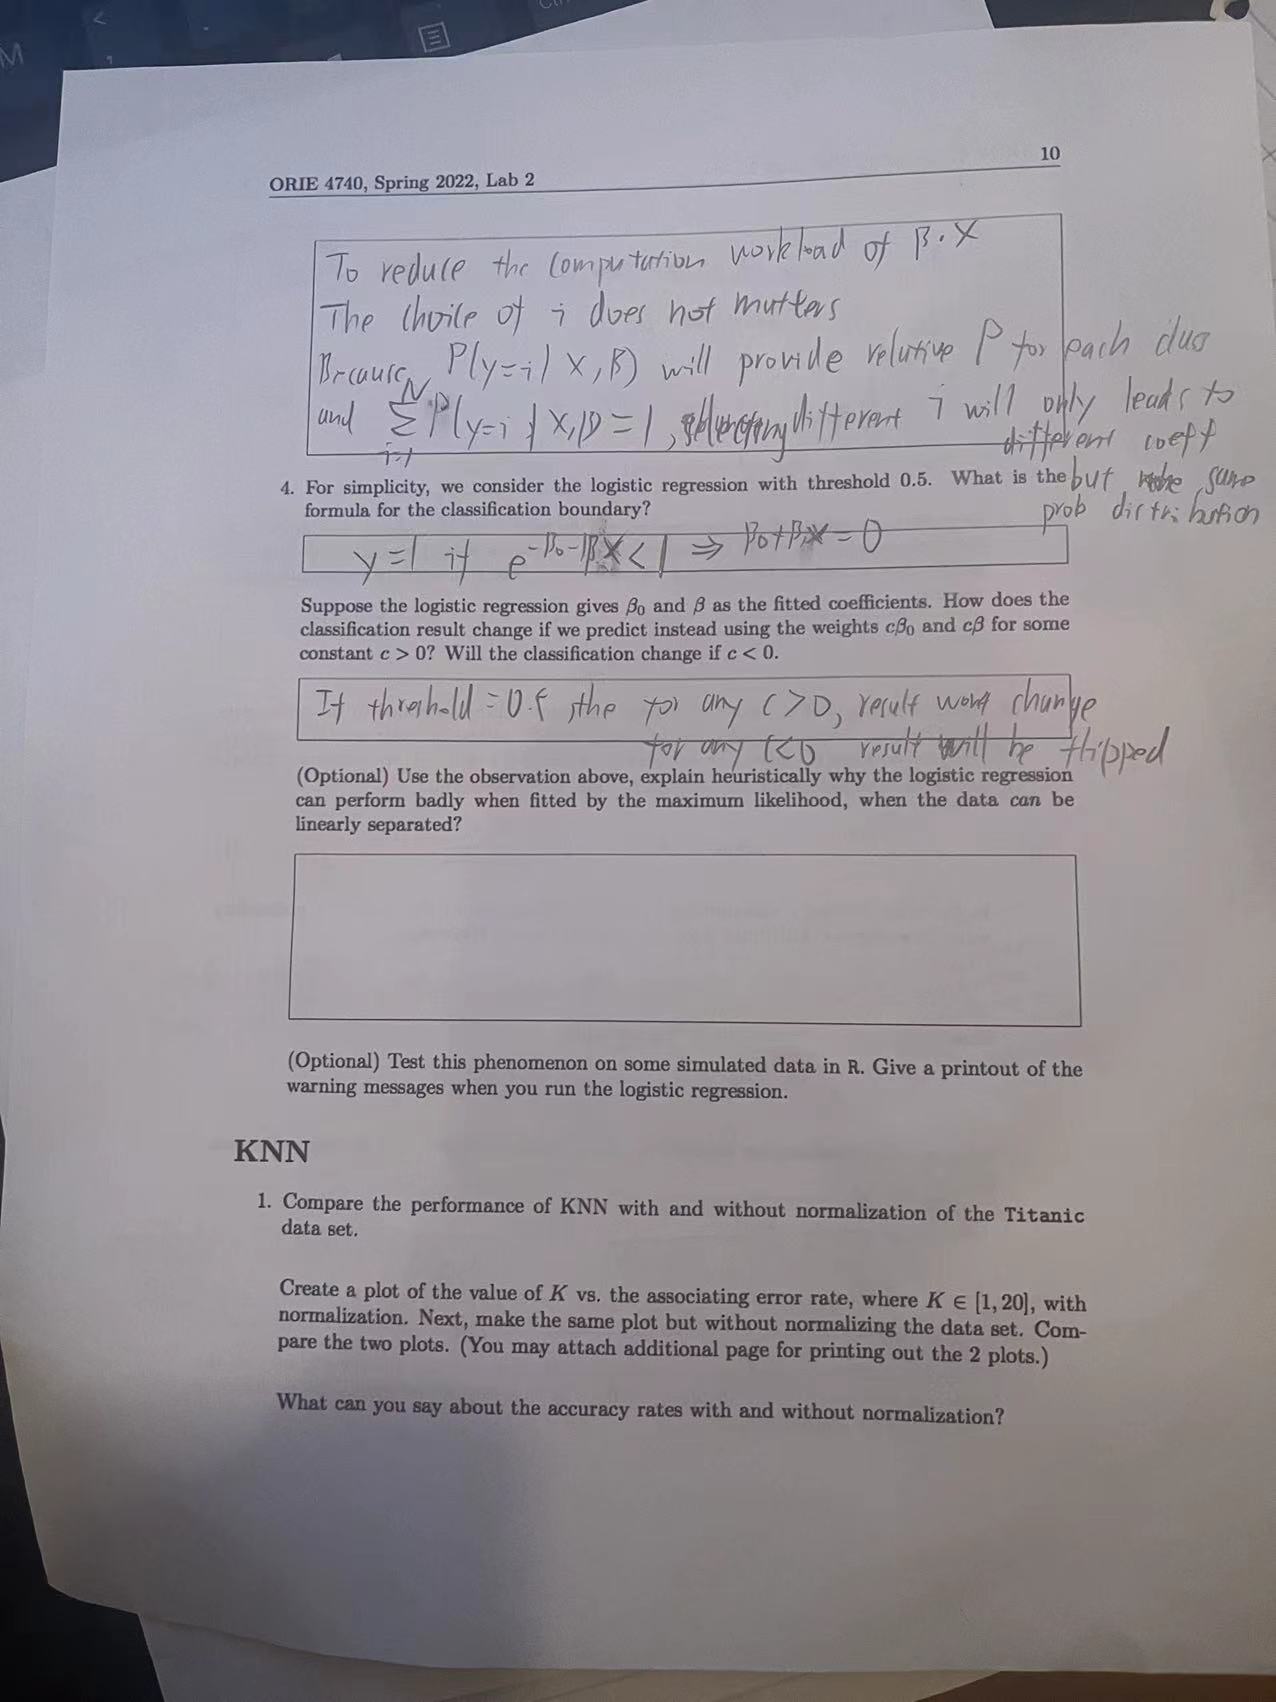 10
ORIE 4740, Spring 2022, Lab 2
To reduce the computation workload of β·X
The choice of i does not mutters
Because P(y=i | X, β) will provide relative P for each
and N∑i=1 P(y=i | X,β) = 1, different i will only leads to
different coeff
but same
prob distribution
4. For simplicity, we consider the logistic regression with threshold 0.5. What is the
formula for the classification boundary?
y=1 if e^{-β₀-βX} < 1 ⇒ β₀+βX = 0
Suppose the logistic regression gives β₀ and β as the fitted coefficients. How does the
classification result change if we predict instead using the weights cβ₀ and cβ for some
constant c > 0? Will the classification change if c < 0.
If threshold = 0.5, the for any C>0, result wont change
for any C<0 result will be flipped
(Optional) Use the observation above, explain heuristically why the logistic regression
can perform badly when fitted by the maximum likelihood, when the data can be
linearly separated?
(Optional) Test this phenomenon on some simulated data in R. Give a printout of the
warning messages when you run the logistic regression.
KNN
1. Compare the performance of KNN with and without normalization of the Titanic
data set.
Create a plot of the value of K vs. the associating error rate, where K ∈ [1, 20], with
normalization. Next, make the same plot but without normalizing the data set. Com-
pare the two plots. (You may attach additional page for printing out the 2 plots.)
What can you say about the accuracy rates with and without normalization?